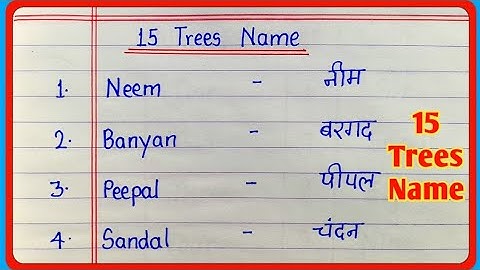 15 Trees Name
1. Neem - नीम
2. Banyan - बरगद
3. Peepal - पीपल
4. Sandal - चंदन
15
Trees
Name